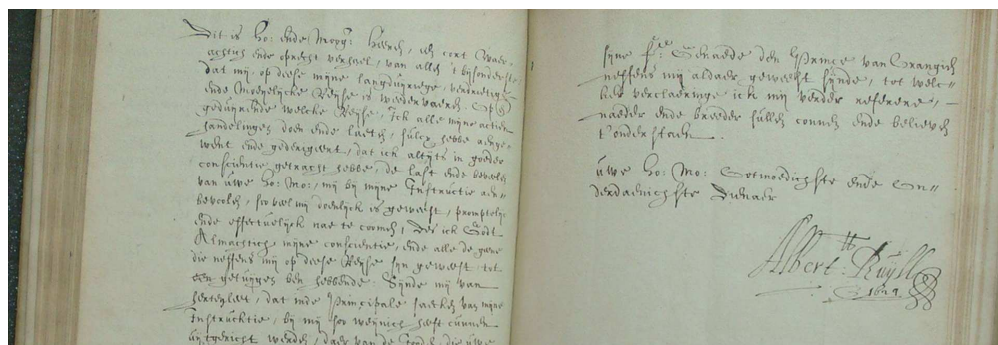 Dit is Ho: ende Mog: Heeren, een cort Waer-
achtich ende oprecht verhael, van alles 't bijsonderste
dat mij op deese mijne langduirige, verdrietige
ende Moeyelijcke Reijse is wedervaeren. Op
geduirende welcke Reijse, Ick alle mijne actien
handelinges doen ende laeten, sulcx hebbe aenge-
went ende gedirigeert, dat ick altijts in goeder
conscientie getracht hebbe, de last ende beveelen
van uwe Ho: Mo:, mij bij mijne Instructie aen-
bevolen, soo veel mij doenlijck is geweest, promptelijc
ende effectuelijck nae te coomen, Des ick Godt
Almachtich mijne conscientie, ende alle de geene
die neffens mij op deese Reijse sijn geweest tot
een getuijges ben hebbende. Sijnde mij van
herten leet, dat inde Principale saecken van mijne
Instrucktie, bij mij soo weijnich heeft cunnen
uijtgericht werden, daer van de
sijne Genaede den Prince van Orangien
neffens mij aldaer geweest sijnde, tot welc-
ker verclaeringe ick mij verder refereere,
naeder ende breeder sullen connen ende believen
t'onderstaen.
uwe Ho: Mo: Ootmoedichste ende On-
derdaenichste Dienaer
Albert Ruijll
1624.